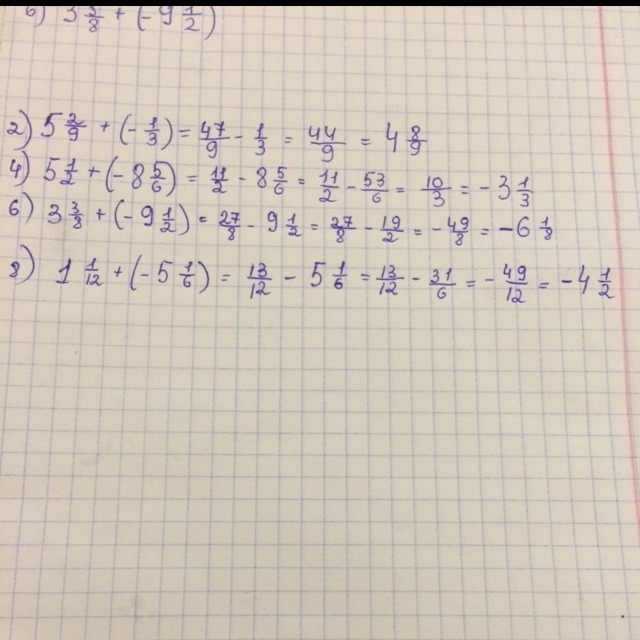 6) 3 3/8 + (- 9 1/2)
2) 5 2/9 + (- 1/3) = 47/9 - 1/3 = 44/9 = 4 8/9
4) 5 1/2 + (- 8 5/6) = 11/2 - 8 5/6 = 11/2 - 53/6 = 10/3 = - 3 1/3
6) 3 3/8 + (- 9 1/2) = 27/8 - 9 1/2 = 27/8 - 19/2 = - 49/8 = - 6 1/8
8) 1 1/12 + (- 5 1/6) = 13/12 - 5 1/6 = 13/12 - 31/6 = - 49/12 = - 4 1/2